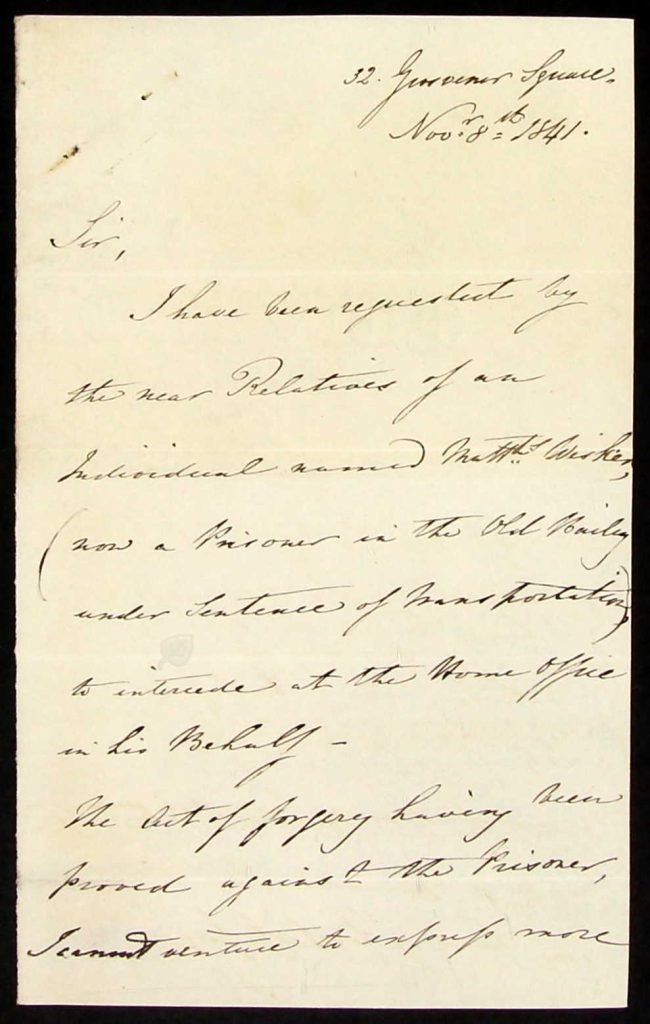 32. Grosvenor Square.
Novr. 8th 1841.
Sir,
I have been requested by
the near Relatives of an
Individual named Matths.
(now a Prisoner in the Old Bailey
under Sentence of Transportation)
to intercede at the Home Office
in his Behalf –
The Act of forgery having been
proved against the Prisoner,
I cannot venture to express more